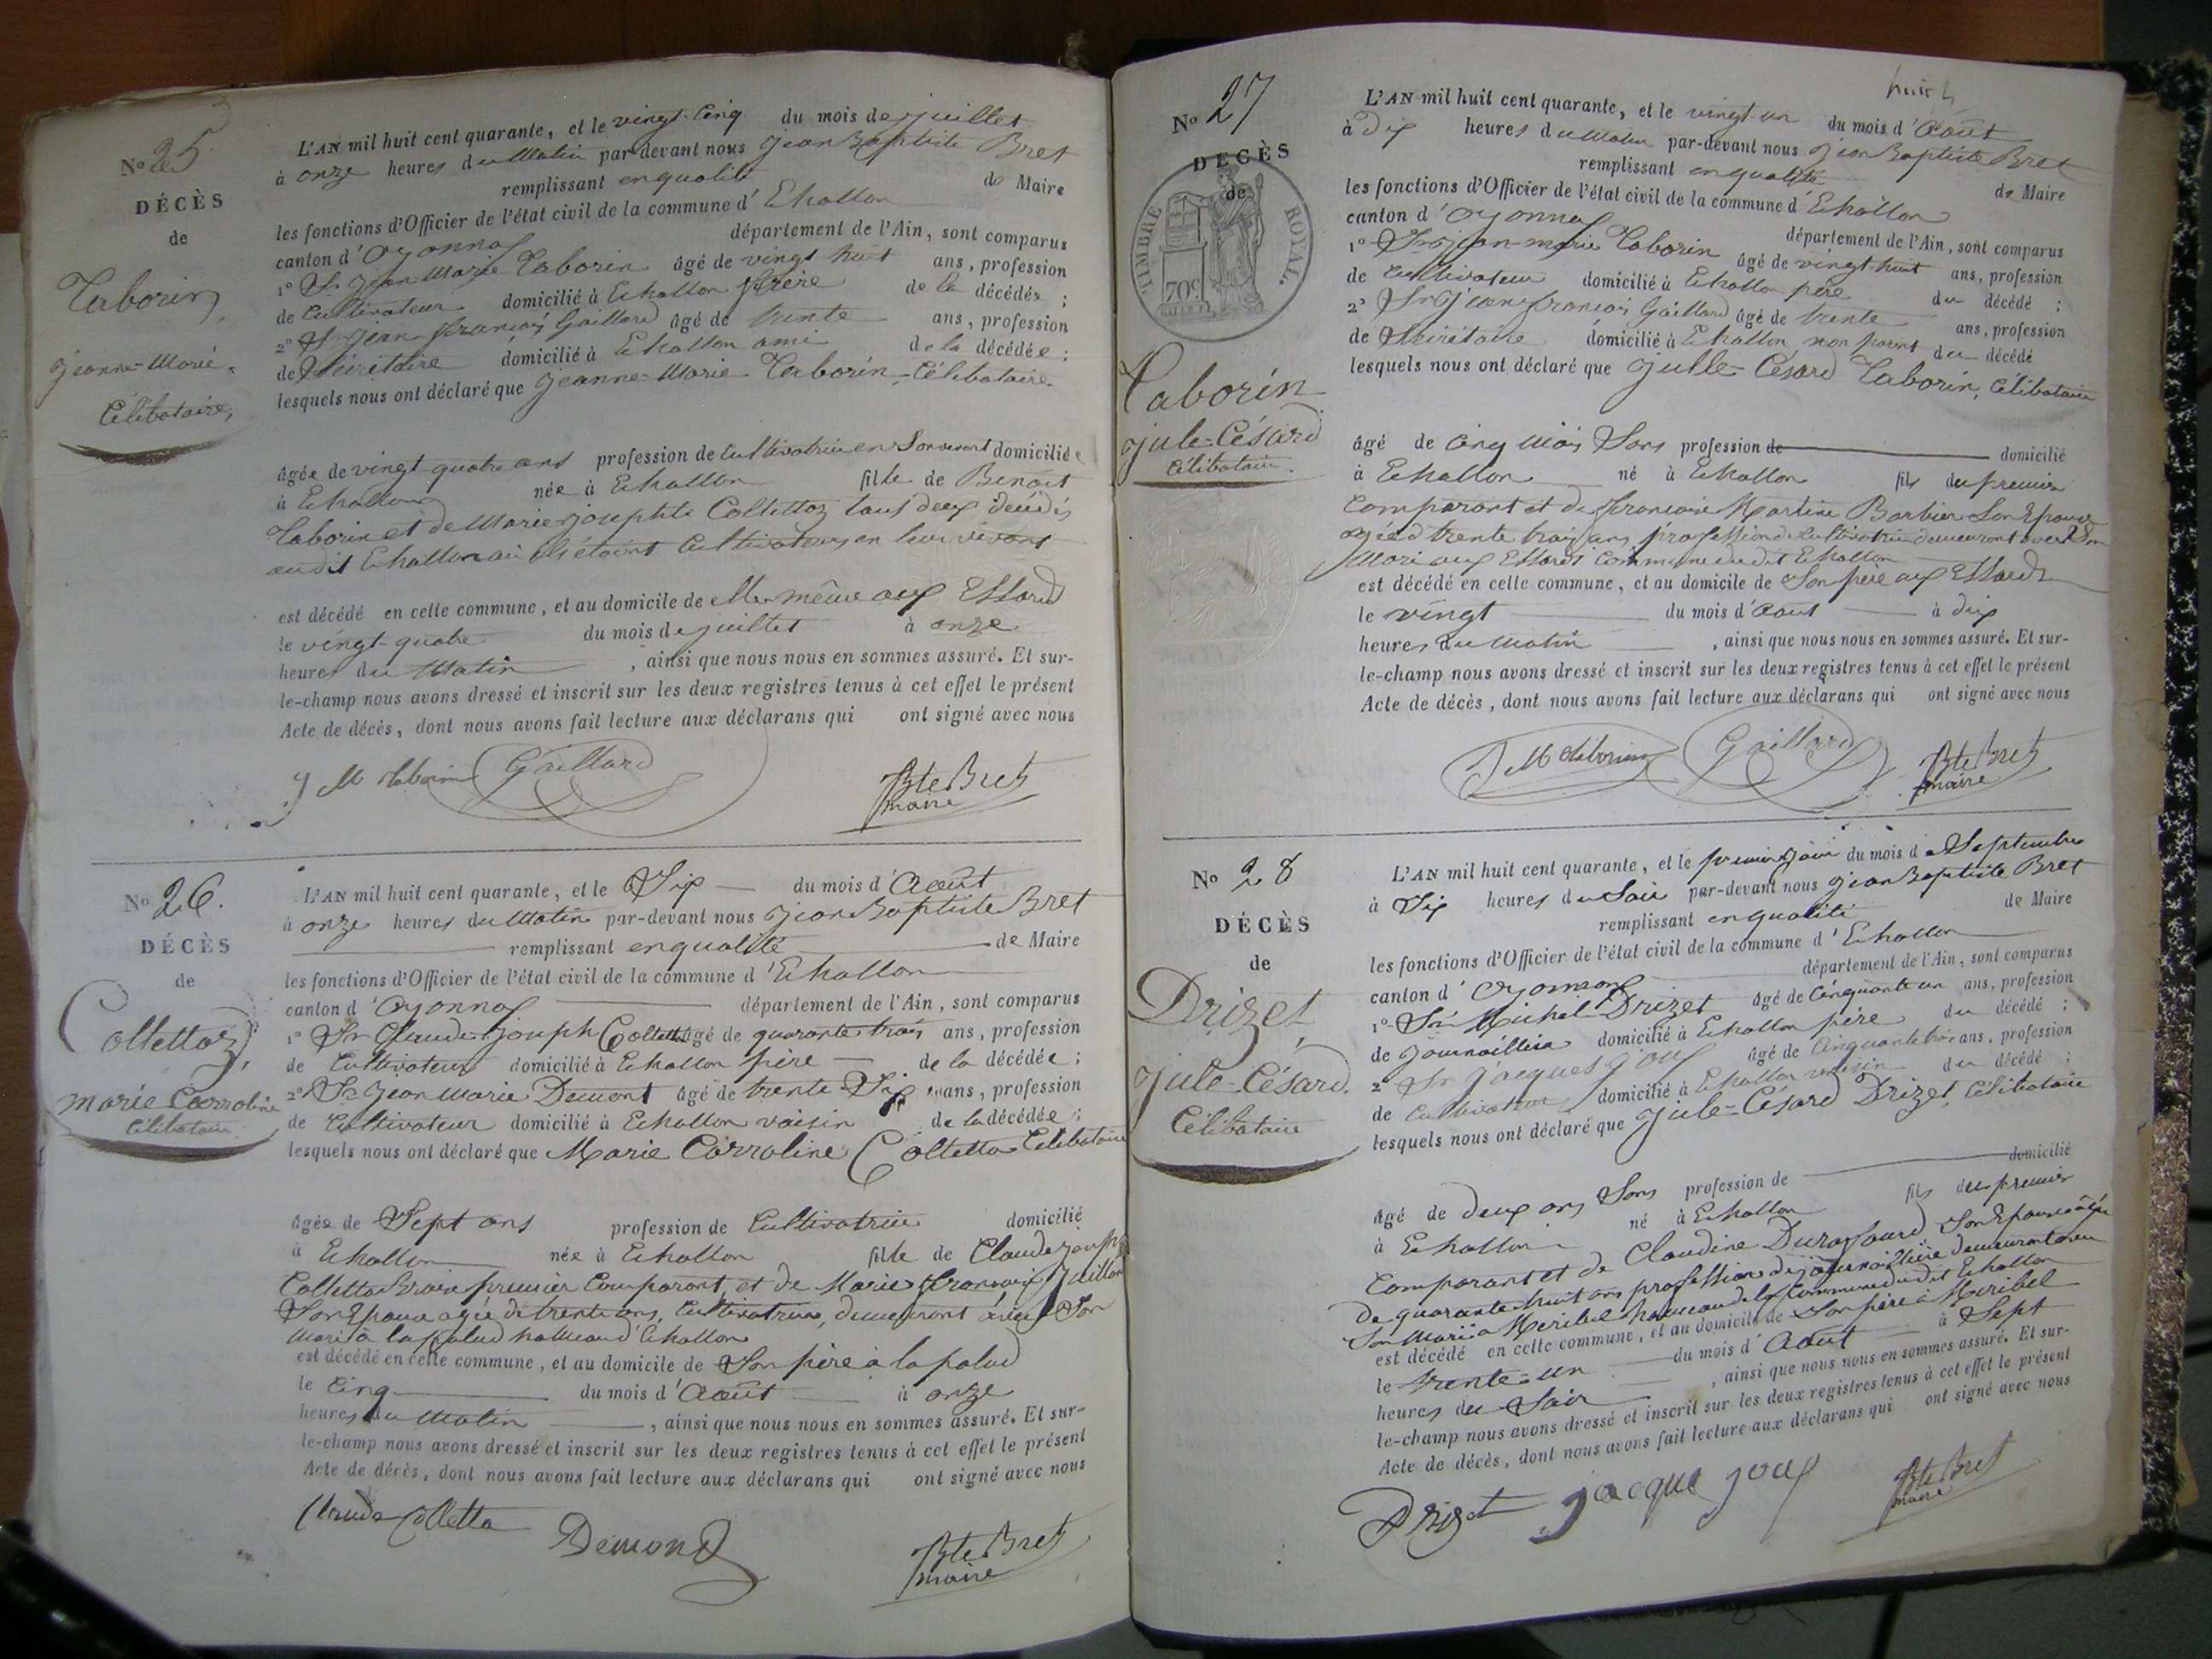 No 25
DÉCÈS
de
Taborin,
Jeanne-Marie.
Célibataire,
L'AN mil huit cent quarante, et le vingt-cinq du mois de juillet
à onze heures du Matin par-devant nous Jean Baptiste Bret
remplissant en qualité de Maire
les fonctions d'Officier de l'état civil de la commune d'Echallon
canton d'Oyonnax département de l'Ain, sont comparus
1° Sr Jean Marie Taborin âgé de vingt huit ans, profession
de Cultivateur domicilié à Echallon frère de la décédée ;
2° Sr Jean François Gaillard âgé de trente ans, profession
de Sécrétaire domicilié à Echallon ami de la décédée ;
lesquels nous ont déclaré que Jeanne-Marie Taborin, Célibataire
âgée de vingt-quatre ans profession de Cultivatrice en Son vivant domiciliée
à Echallon née à Echallon fille de Benoit
Taborin et de Marie-Josephte Collettaz tous deux décédés
audit Echallon où ils étaient Cultivateurs en leur vivant
est décédé en cette commune, et au domicile de Elle-même aux Essards
le vingt-quatre du mois de juillet à onze
heures du Matin , ainsi que nous nous en sommes assuré. Et sur-
le-champ nous avons dressé et inscrit sur les deux registres tenus à cet effet le présent
Acte de décès, dont nous avons fait lecture aux déclarans qui ont signé avec nous
J M taborin Gaillard Bte Bret
maire
No 26.
DÉCÈS
de
Collettaz,
Marie Carroline
Célibataire
L'AN mil huit cent quarante, et le Six du mois d'Août
à onze heures du Matin par-devant nous Jean Baptiste Bret
remplissant en qualité de Maire
les fonctions d'Officier de l'état civil de la commune d'Echallon
canton d'Oyonnax département de l'Ain, sont comparus
1° Sr Claude Joseph Colletta âgé de quarante trois ans, profession
de Cultivateur domicilié à Echallon père de la décédée ;
2° Sr Jean Marie Demont âgé de trente-Six ans, profession
de Cultivateur domicilié à Echallon voisin de la décédée ;
lesquels nous ont déclaré que Marie Carroline Colletta Célibataire
âgée de Sept ans profession de Cultivatrice domicilié
à Echallon née à Echallon fille de Claude Joseph
Colletta premier Comparant, et de Marie Françoise
Son Epouse agée de trente ans, Cultivatrice, demeurant avec Son
Mari à la palud hameau d'Echallon
est décédé en cette commune, et au domicile de Son père à la palud
le Cinq du mois d'Août à onze
heures du Matin , ainsi que nous nous en sommes assuré. Et sur-
le-champ nous avons dressé et inscrit sur les deux registres tenus à cet effet le présent
Acte de décès, dont nous avons fait lecture aux déclarans qui ont signé avec nous
Claude Colletta Demond Bte Bret
maire
No 27
DÉCÈS
de
TIMBRE ROYAL.
70c
Taborin
Jule-Césard
célibataire.
L'AN mil huit cent quarante, et le vingt-un du mois d'Août
à Dix heures du Matin par-devant nous Jean Baptiste Bret
remplissant en qualité de Maire
les fonctions d'Officier de l'état civil de la commune d'Echallon
canton d'Oyonnax département de l'Ain, sont comparus
1° Sr Jean-marie Taborin âgé de vingt-huit ans, profession
de Cultivateur domicilié à Echallon père du décédé ;
2° Sr Jean François Gaillard âgé de trente ans, profession
de Sécrétaire domicilié à Echallon, non parent du décédé
lesquels nous ont déclaré que Julle-Césard Taborin, Célibataire
âgé de Cinq Mois Sans profession de domicilié
à Echallon né à Echallon fils du premier
Comparant et de Françoise Martine Barbier Son Epouse
agée de trente trois ans, profession de Cultivatrice demeurant avec Son
Mari aux Essards Commune dudit Echallon
est décédé en cette commune, et au domicile de Son père aux Essards
le vingt du mois d'Aout à dix
heures du Matin , ainsi que nous nous en sommes assuré. Et sur-
le-champ nous avons dressé et inscrit sur les deux registres tenus à cet effet le présent
Acte de décès, dont nous avons fait lecture aux déclarans qui ont signé avec nous
J M taborin Gaillard Bte Bret
maire
No 28
DÉCÈS
de
Drizet,
Jule-Césard.
Célibataire
L'AN mil huit cent quarante, et le premier jour du mois de Septembre
à Six heures du Soir par-devant nous Jean Baptiste Bret
remplissant en qualité de Maire
les fonctions d'Officier de l'état civil de la commune d'Echallon
canton d'Oyonnax département de l'Ain, sont comparus
1° Sr Michel Drizet âgé de Cinquante un ans, profession
de Journaillier domicilié à Echallon père du décédé ;
2° Sr Jacques Joux âgé de Cinquante trois ans, profession
de Cultivateur domicilié à Echallon voisin du décédé ;
lesquels nous ont déclaré que Jule-Césard Drizet, Célibataire
âgé de deux ans Sans profession de domicilié
à Echallon né à Echallon fils du premier
Comparant et de Claudine Son Epouse âgée
de quarante-huit ans profession de journaillière demeurant avec
Son Mari à Meribel hameau de la Commune dudit Echallon
est décédé en cette commune, et au domicile de Son père à Meribel
le trente-un du mois d'Août à Sept
heures du Soir , ainsi que nous nous en sommes assuré. Et sur-
le-champ nous avons dressé et inscrit sur les deux registres tenus à cet effet le présent
Acte de décès, dont nous avons fait lecture aux déclarans qui ont signé avec nous
Drizet jacque joux Bte Bret
maire